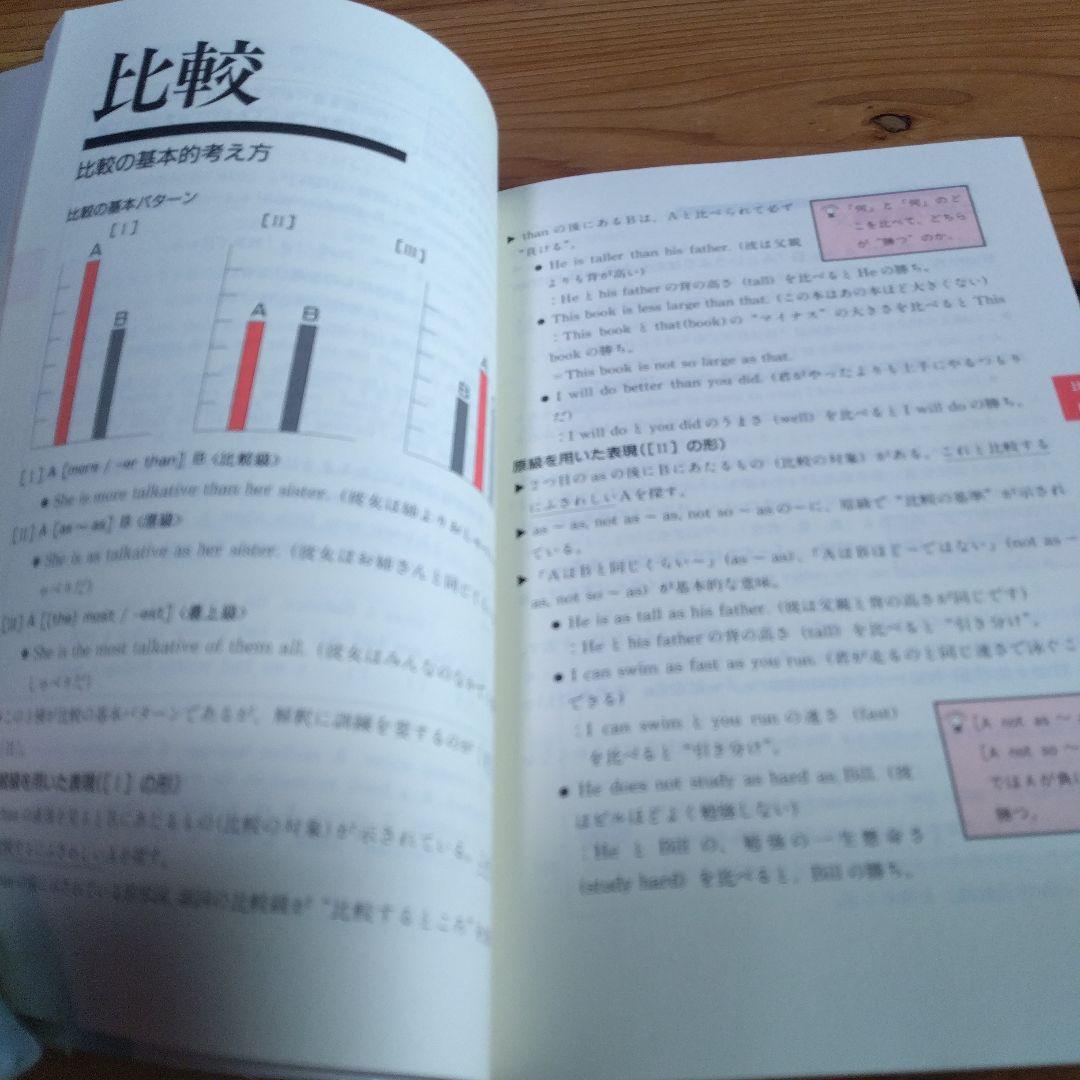 比較
比較の基本的考え方
比較の基本パターン
[I]
[II]
[III]
A
B
A
B
A
B
[I] A [more / -er than] B〈比較級〉
● She is more talkative than her sister.（彼女は姉よりおしゃべ
[II] A [as ~ as] B〈原級〉
● She is as talkative as her sister.（彼女はお姉さんと同じくら
ゃべりだ）
[III] A [(the) most / -est]〈最上級〉
● She is the most talkative of them all.（彼女はみんなのなかで
しゃべりだ）
が比較の基本パターンであるが、解釈に訓練を要するのが
を用いた表現([I] の形)
にあたるもの(比較の対象)が示されている。
ふさわしいAを探す。
の比較級が“比較するところ”
▶ thanの後にあるBは、Aと比べられて必ず
“負ける”。
● He is taller than his father.（彼は父親
よりも背が高い）
: Heとhis fatherの背の高さ（tall）を比べるとHeの勝ち。
● This book is less large than that.（この本はあの本ほど大きくない）
: This bookとthat(book)の“マイナス”の大きさを比べるとThis
bookの勝ち。
=This book is not so large as that.
● I will do better than you did.（君がやったよりも上手にやるつもり
だ）
: I will doとyou didのうまさ（well）を比べるとI will doの勝ち。
原級を用いた表現([II] の形)
▶ 2つ目のasの後にBにあたるもの（比較の対象）がある。これと比較する
にふさわしいAを探す。
▶ as ~ as, not as ~ as, not so ~ asの～に、原級で“比較の基準”が示され
ている。
▶ 「AはBと同じくらい～」(as ~ as)、「AはBほど～ではない」(not as ~
as, not so ~ as) が基本的な意味。
● He is as tall as his father.（彼は父親と背の高さが同じです）
: Heとhis fatherの背の高さ（tall）を比べると“引き分け”。
● I can swim as fast as you run.（君が走るのと同じ速さで泳ぐこ
できる）
: I can swimとyou runの速さ（fast）
を比べると“引き分け”。
● He does not study as hard as Bill.（彼
はビルほどよく勉強しない）
: HeとBillの、勉強の一生懸命さ
（study hard）を比べると、Billの勝ち。
「何」と「何」のど
こを比べて、どちら
が“勝つ”のか。
[A not as ~
[A not so ~
ではAが負け
勝つ。